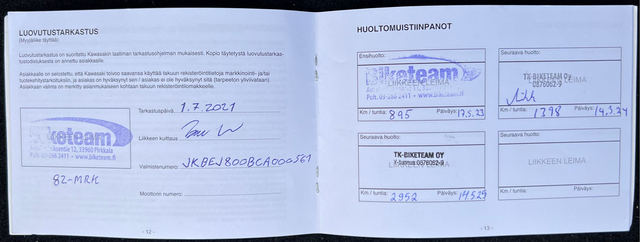 LUOVUTUSTARKASTUS
(Myyjäliike täyttää)
Luovutustarkastus on suoritettu Kawasakin laatiman tarkastusohjelman mukaisesti. Kopio täytetystä luovutustarkas-
tustodistuksesta on annettu asiakkaalle.
Asiakkaalle on selostettu, että Kawasaki toivoo saavansa käyttää takuun rekisteröintitietoja markkinointi- ja/tai
tuotekehitystarkoituksiin, ja asiakas on hyväksynyt sen / asiakas ei ole hyväksynyt sitä (tarpeeton yliviivataan).
Asiakkaan valinta on merkitty asianmukaiseen kohtaan takuun rekisteröintilomakkeelle.
Tarkastuspäivä: 1.7.2021
Biketeam
12, 33960 Pirkkala
2411 • www.biketeam.fi
82-MRK
Liikkeen kuittaus:
Valmistenumero: JKBEJ800BCA000561
Moottorin numero:
- 12 -
HUOLTOMUISTIINPANOT
Ensihuolto:
Biketeam
LIIKKEEN LEIMA
Puh. 03-266 2411 • www.biketeam.fi
Km / tuntia: 895 Päiväys: 17.5.23
Seuraava huolto:
TK-BIKETEAM OY
0876062-9
LIIKKEEN LEIMA
Km / tuntia: 1398 Päiväys: 14.5.24
Seuraava huolto:
TK-BIKETEAM OY
0876062-9
Km / tuntia: 2952 Päiväys: 14.5.25
Seuraava huolto:
LIIKKEEN LEIMA
Km / tuntia: Päiväys:
- 13 -